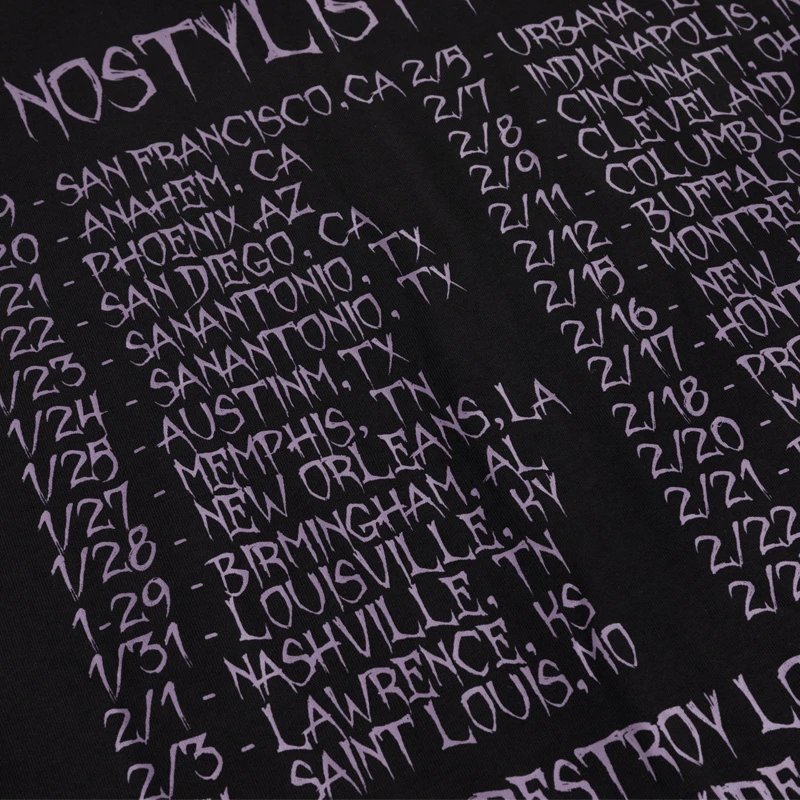 NOSTYLIST
9 - SAN FRANCISCO,CA
20 - ANAHEM, CA
21 - PHOENIX,AZ
22 - SAN DIEGO, CA
1/23 - SANANTONIO, TX
1/24 - SANANTONIO, TX
1/25 - AUSTINM,TX
1/27 - MEMPHIS, TN
1/28 - NEW ORLEANS,LA
1-29 - BIRMINGHAM, AL
1/31 - LOUISVILLE, KY
2/1 - NASHVILLE, TN
2/3 - LAWRENCE, KS
SAINT LOUIS,MO
2/5 - URBANA, IL
2/7 - INDIANAPOLIS,
2/8 - CINCNNATI, OH
2/9 - CLEVELAND
2/11 - COLUMBUS
2/12 - BUFFALO
2/15 - MONTRE
2/16 - NEW
2/17 - HONT
2/18 - PRO
2/20 -
2/21 -
2/22 -
2/2
DESTROY LO